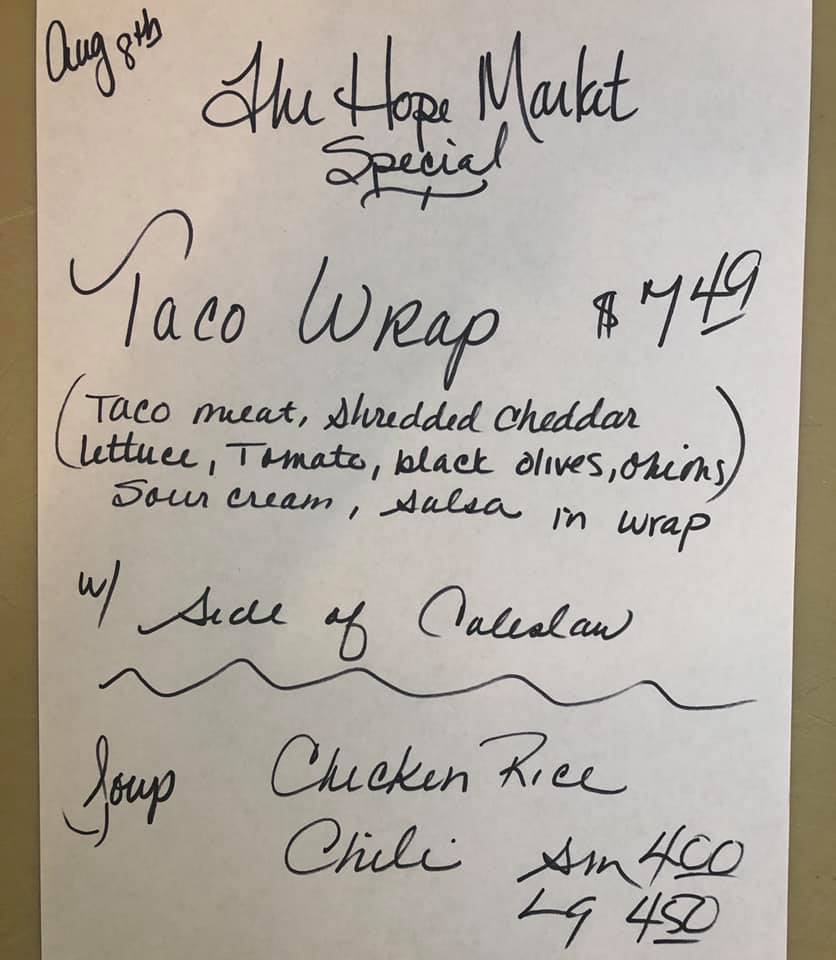 Aug 8th
The Hope Market
Special
Taco Wrap $7 49
(Taco meat, shredded cheddar
lettuce, Tomato, black olives, onions)
Sour cream, salsa in wrap
w/ side of Coleslaw
Soup Chicken Rice
Chili Sm 4 00
Lg 4 50